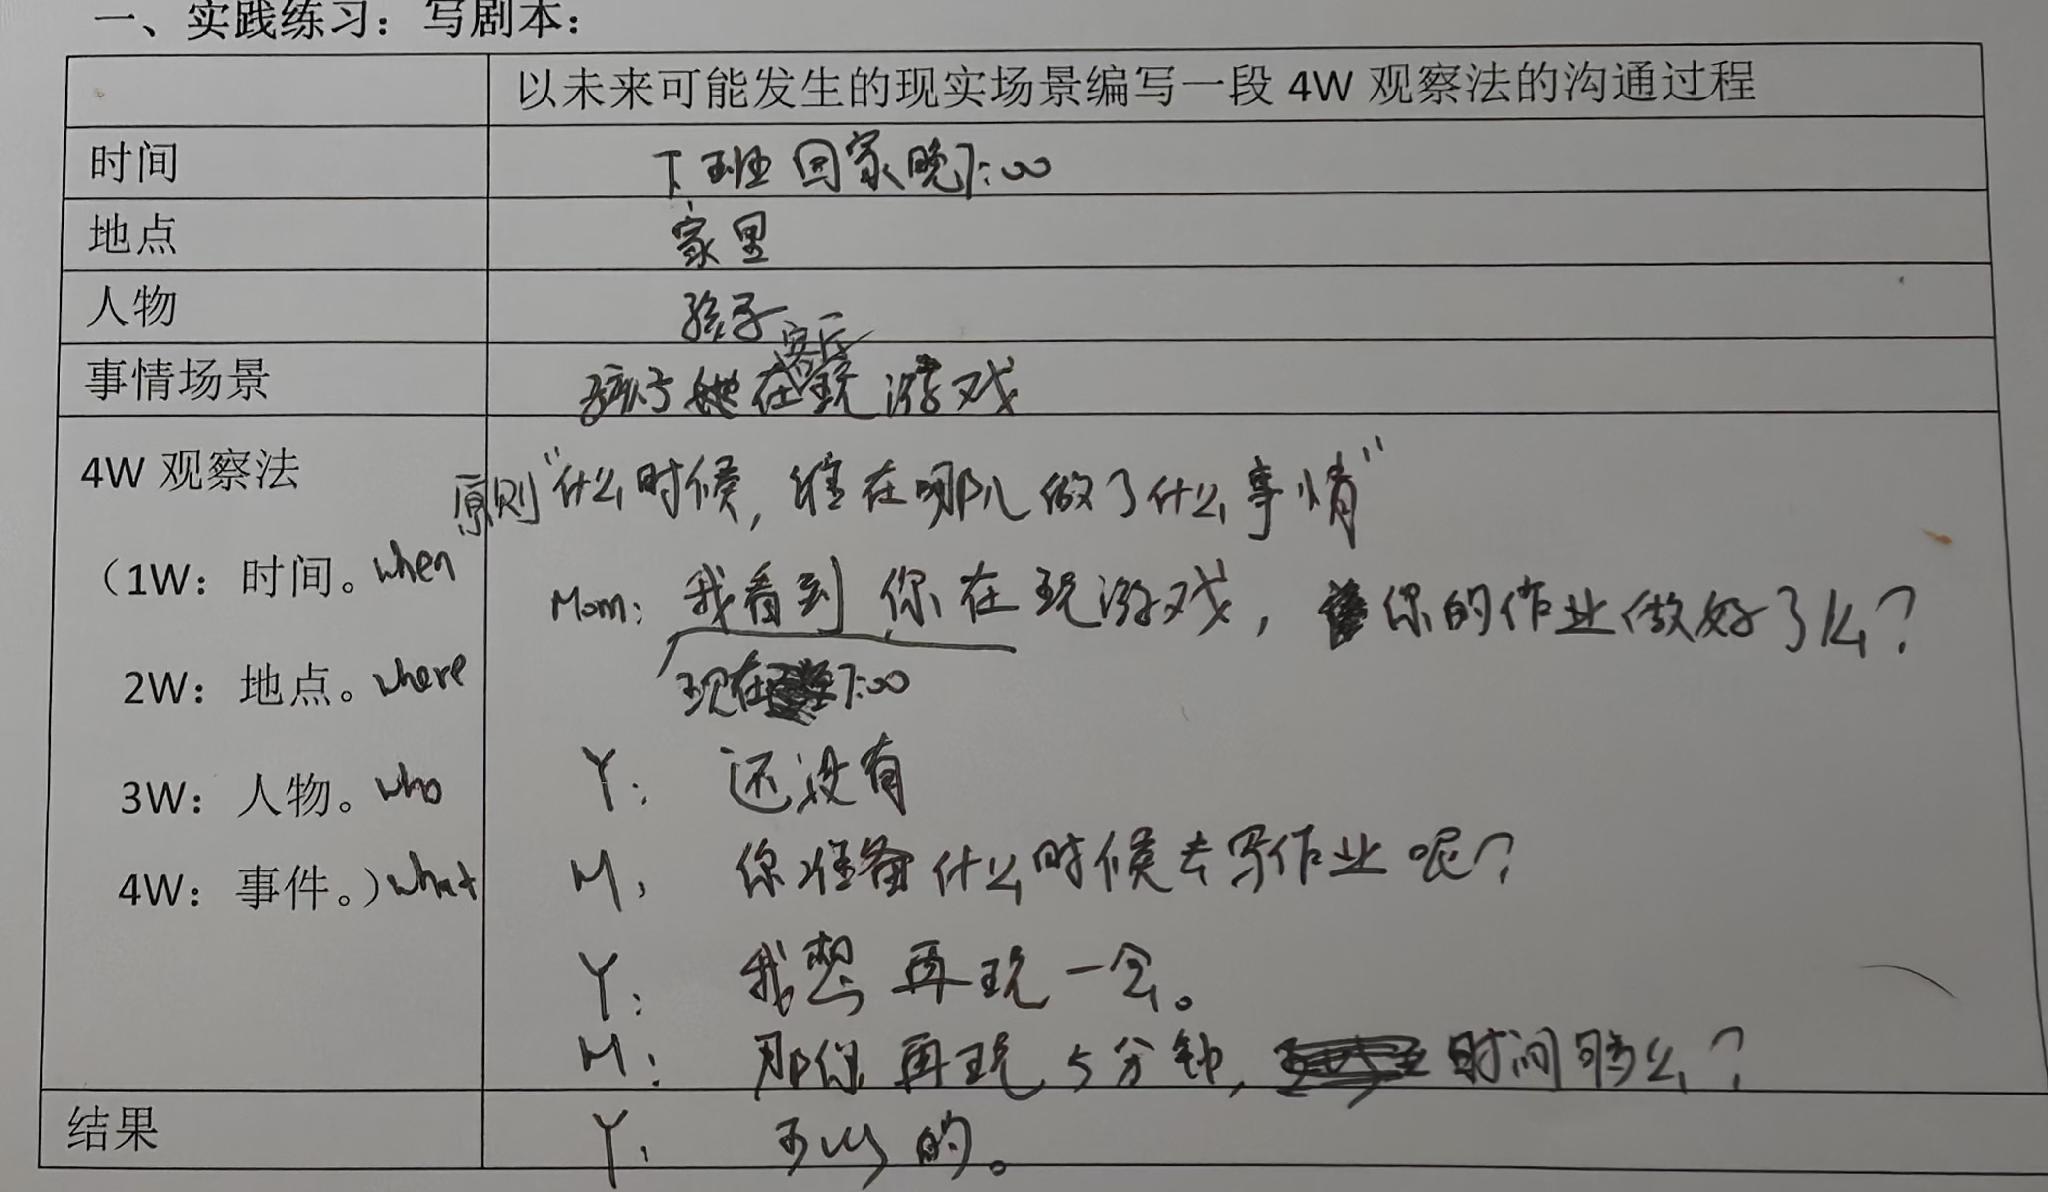 一、实践练习：写剧本：
以未来可能发生的现实场景编写一段 4W 观察法的沟通过程
时间 下班回家晚7:00
地点 家里
人物 孩子
客厅
事情场景 孩子 在玩游戏
4W 观察法
原则“什么时候，谁在哪儿做了什么事情”
（1W：时间。when
Mom: 我看到你在玩游戏，你的作业做好了么？
2W：地点。where 现在 7:00
3W：人物。who Y: 还没有
4W：事件。）what M: 你准备什么时候去写作业呢？
Y: 我想再玩一会。
M: 那你再玩5分钟，时间够么？
结果 Y: 可以的。